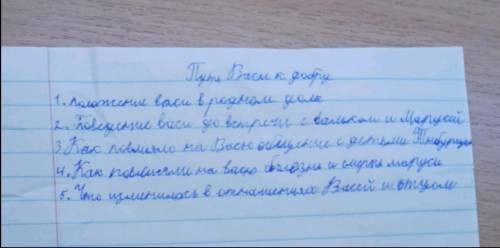 Путь Васи к добру
1. положение васи в родном доме
2. Поведение васи до встречи с валеком и Марусей
3. Как повлияло на Васю общение с детьми Тыбурция
4. Как повлияли на васю болезнь и смерть маруси
5. Что изменилось в отношениях Васей и отцом